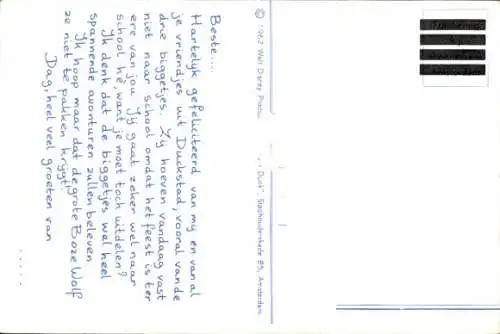 Beste....
Hartelijk gefeliciteerd van mij en van al
je vriendjes uit Duckstad, vooral van de
drie biggetjes. Zij hoeven vandaag vast
niet naar school omdat het feest is ter
ere van jou. Jij gaat zeker wel naar
school hè, want je moet toch uitdelen?
Ik denk dat de biggetjes wel heel
spannende avonturen zullen beleven
Ik hoop maar dat de grote Boze Wolf
ze niet te pakken krijgt!
Dag, heel veel groeten van
.....
© 1962 Walt Disney
Duck", Stadhouderskade 85, Amsterdam